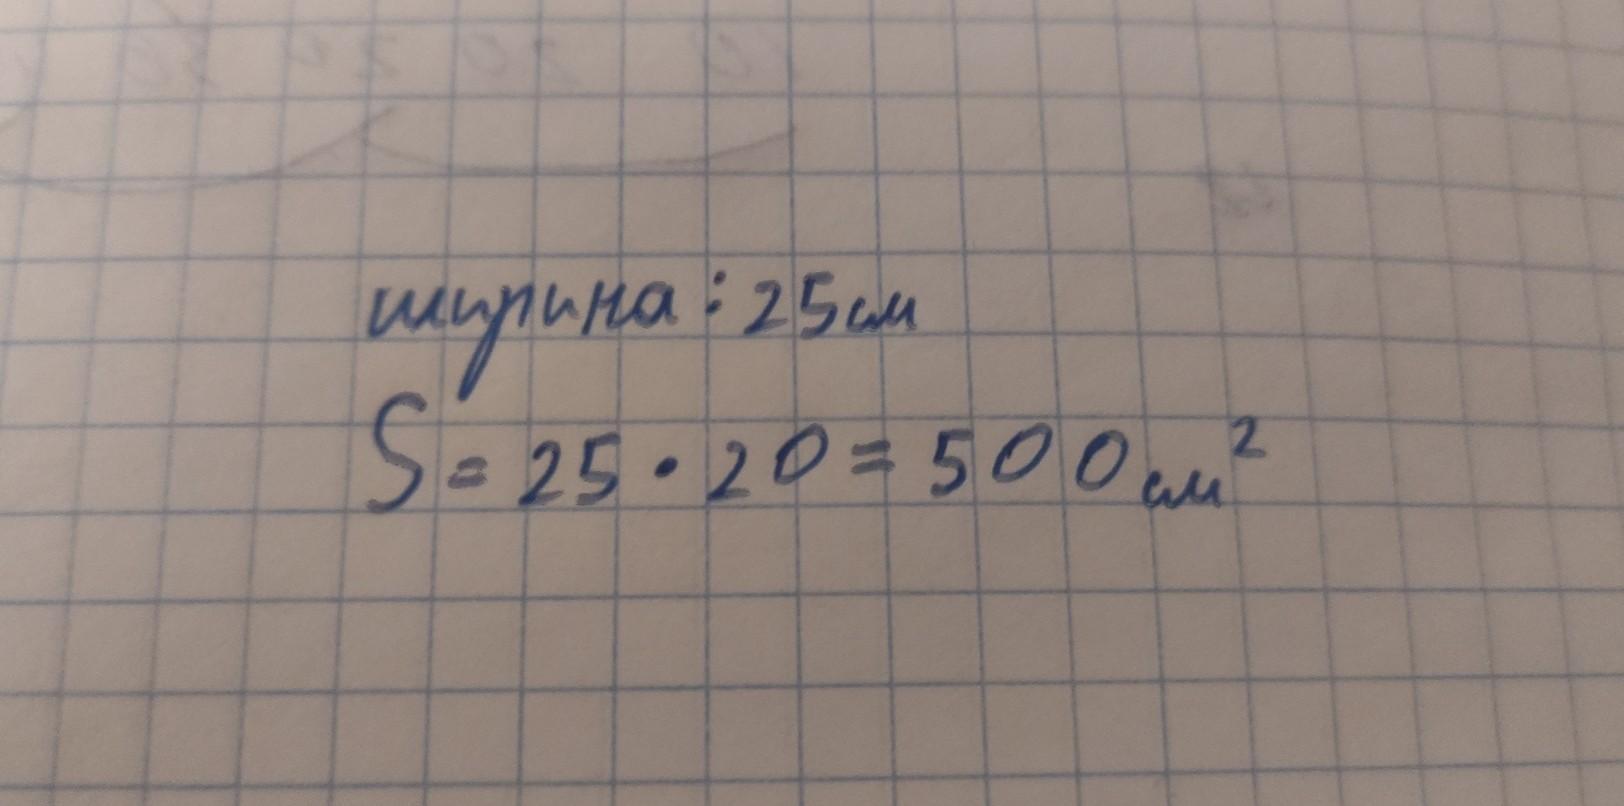 ширина: 25см
S = 25 · 20 = 500 см²